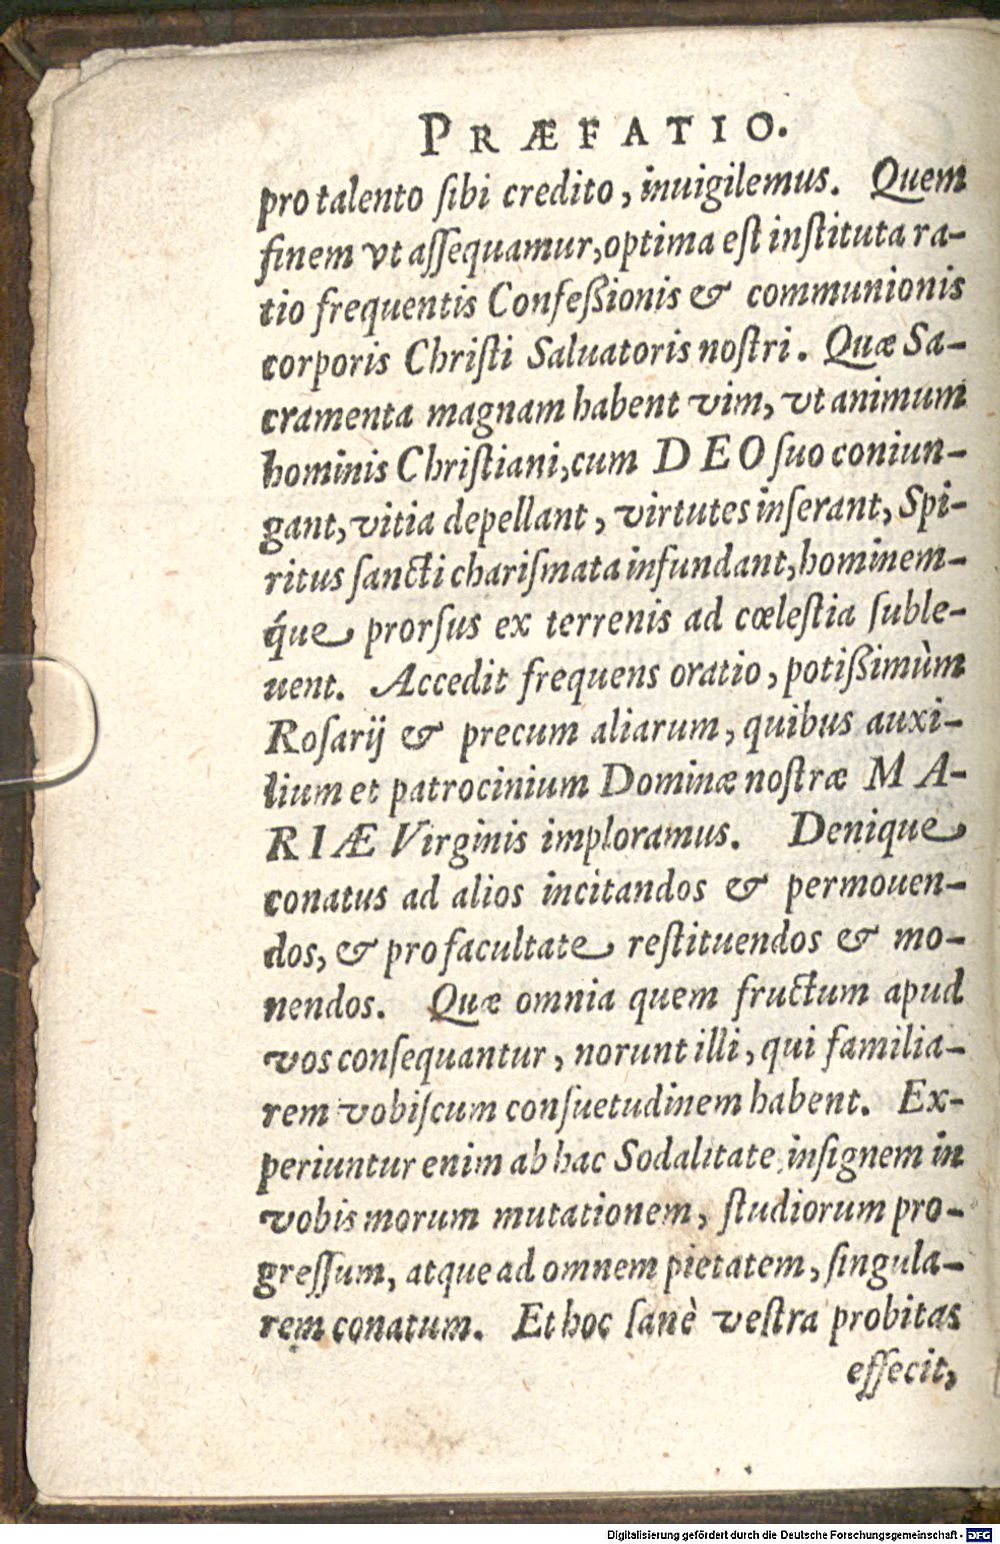 PRÆFATIO.
pro talento ſibi credito, inuigilemus. Quem
finem vt aſſequamur, optima eſt inſtituta ra-
tio frequentis Confeßionis & communionis
corporis Chriſti Saluatoris noſtri. Quæ Sa-
cramenta magnam habent vim, vt animum
hominis Chriſtiani, cum DEO ſuo coniun-
gant, vitia depellant, virtutes inſerant, Spi-
ritus ſancti chariſmata infundant, hominem-
q́ue prorſus ex terrenis ad cœleſtia ſuble-
uent. Accedit frequens oratio, potißimùm
Roſarij & precum aliarum, quibus auxi-
lium et patrocinium Dominæ noſtræ MA-
RIÆ Virginis imploramus. Denique
conatus ad alios incitandos & permouen-
dos, & pro facultate reſtituendos & mo-
nendos. Quæ omnia quem fructum apud
vos conſequantur, norunt illi, qui familia-
rem vobiſcum conſuetudinem habent. Ex-
periuntur enim ab hac Sodalitate inſignem in
vobis morum mutationem, ſtudiorum pro-
greſſum, atque ad omnem pietatem, ſingula-
rem conatum. Et hoc ſanè veſtra probitas
effecit,
Digitalisierung gefördert durch die Deutsche Forschungsgemeinschaft - DFG